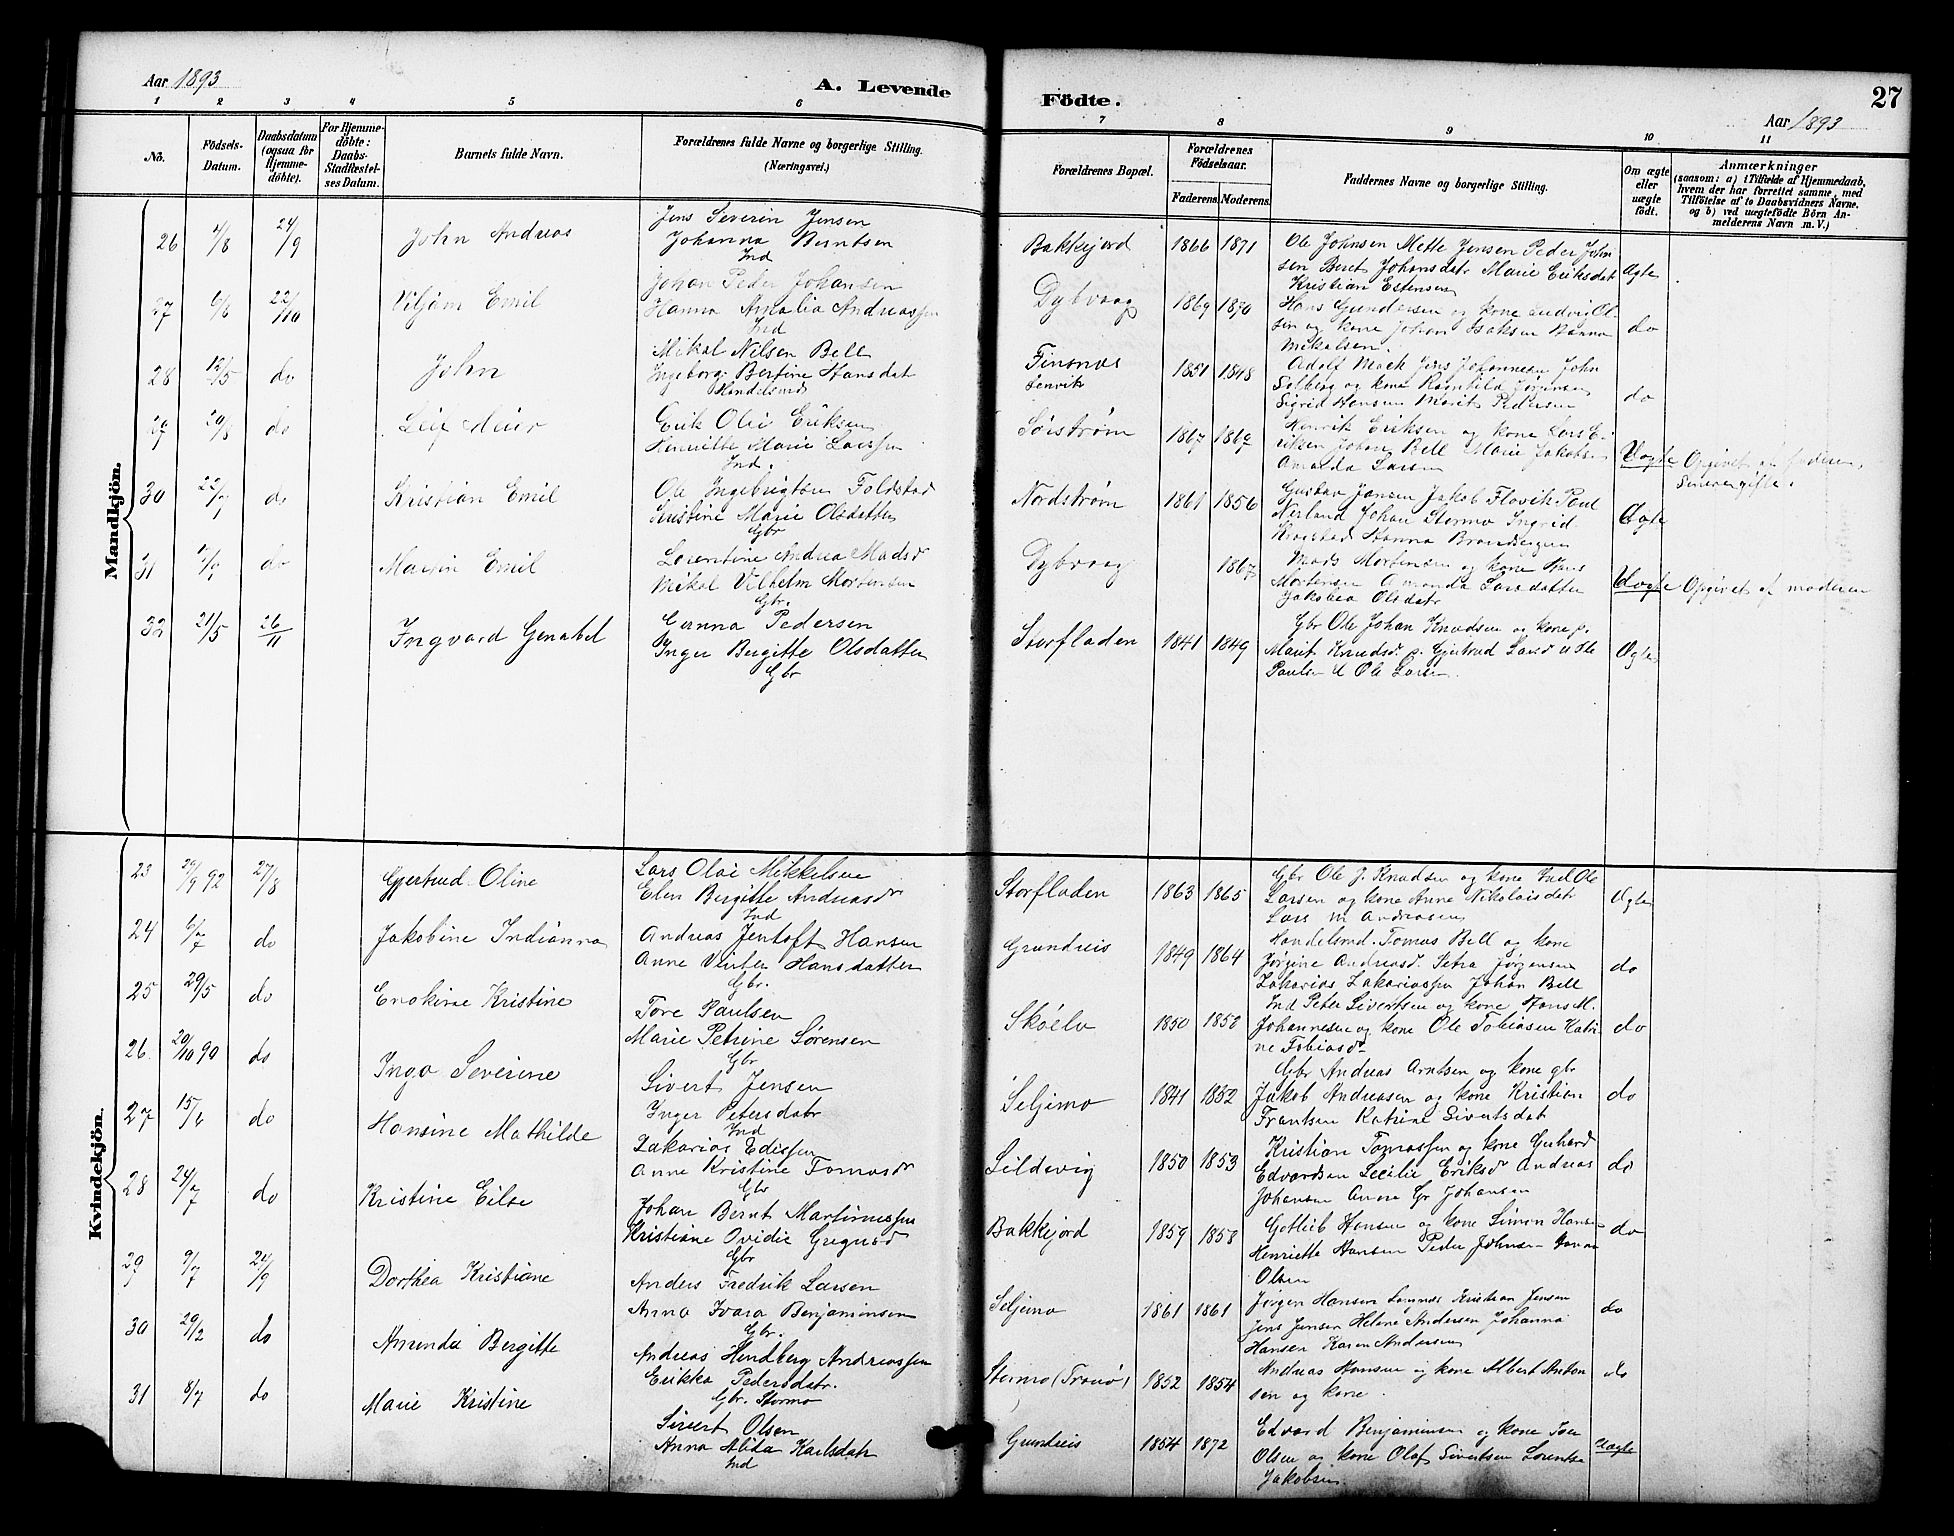 Aar 1893
A. Levende
1 2 3 4 5 6
No. Födsels-Datum. Daabsdatum (ogsaa for Hjemme-döbte). For Hjemme-döbte: Daabs-Stadfæstel-ses Datum. Barnets fulde Navn. Forældrenes fulde Navne og borgerlige Stilling. (Næringsvei.)
Mandkjön.
26 /8 24/9 John Andreas Jens Severin Jensen
Johanna Berntsen
Ind
27 6/6 22/10 Viljam Emil Johan Peder Johansen
Hanna Amalia Andreassen
Ind
28 12/5 do John Mikal Nilsen Bell
Ingeborg Bertine Hansdat
Handelsmd
29 do Leif Erik Olai Eriksen
Henriette Marie Larssen
Ind.
30 22/ do Kristian Emil Ole Ingebrigtsen Foldstad
Kristine Marie Olsdatter
Gbr
31 do Emil Lorentine Andrea Madsd
Mikal Vilhelm Mortensen
Gbr.
32 21/5 26/11 Ingvard Pedersen
Inger Bergitte Olsdatter
Gbr
Kvindekjön.
23 /9 92 27/8 Gjertrud Oline Lars Olai Mikkelsen
Elen Bergitte Andreasdr
Ind
24 6/7 do Jakobine Indianna Andreas Jentoft Hansen
Anne Hansdatter
Gbr.
25 29/5 do Enokine Kristine Tore Paulsen
Marie Petrine Sørensen
Gbr
26. 20/10 90 do Inga Severine Sivert Jensen
Inger Petersdatr
Ind
27 15/6 do Hansine Mathilde Zakarias Edissen
Anne Kristine Tomasdr
Gbr
28 24/7 do Kristine Eilse Johan Bernt Martinussen
Kristiane Ovidie
Gbr
29 9/7 24/9 Dorthea Kristiane Anders Fredrik Larsen
Anna Ivara Benjaminsen
Gbr.
30 29/2 do Amanda Bergitte Andreas Hendberg Andreassen
Erikka Pedersdatr.
Gbr. Stormo
31 8/7 do Marie Kristine Sivert Olsen
Anna Alida Karlsdatr
Ind
Födte. 27
Aar 1893
7 8 9 10 11
Forældrenes Bopæl. Forældrenes Födselsaar. Faderens Moderens. Faddernes Navne og borgerlige Stilling. Om ægte eller uægte født. Anmærkninger
(saasom: a) i Tilfælde af Hjemmedaab, hvem der har forrettet samme, med Tilföielse af to Daabsvidners Navne, og b) ved uægtefödte Börn An-melderens Navn m.V.)
Bakkejord 1866 1871 Ole Johnsen Mette Jensen Peder John
sen Beret Johansdatr Marie Eriksdat
Kristian Estensen
Ægte
Dybvaag 1869 1870 Hans Gundersen og kone Ol
sen og kone Johan Isaksen Hanna
Mikalsen.
do
Finsnæs
Lenvik 1851 1848 Adolf Mack Jens Johannesen John
Solberg og kone Ragnhild Jørgensen
Sigrid Hansen Marit Pedersen
do
Sørstrøm 1867 1869 Henrik Eriksen og kone Lars E
riksen Johan Bell Marie Jakobsen
Amanda Larsen
Uægte Opgivet av faderen,
Nordstrøm 1861 1856 Gustav Jansen Jakob Flovik Poul
Nerland Johan Stormo Ingrid
Hanna
Ægte
Dybvaag 1867 Mads Mortensen og kone Hans
Mortensen Amanda Larsdatter
Jakobea Olsdatr
Uægte Opgivet af moderen
Storfladen 1841 1849 Gbr Ole Johan Knudsen og kone p.
Marit Knudsd. p. Gjertrud Larsd
Paulsen Ole Larsen.
Ægte
Storfladen 1863 1865 Gbr Ole J. Knudsen og kone Ind Ole
Larsen og kone Anne Nikolaisdatr
Lars M Andreasen
Ægte
Grundreis 1849 1864 Handelsmd. Tomas Bell og kone
Jørgine Andreasd. Petra Jørgensen
Zakarias Zakariassen Johan Bell
do
Skøelv 1850 1858 Ind Peter Sivertsen og kone Hans M.
Johannesen og kone Ole Tobiasen Katri
ne Tobiasd
do
Seljemo 1841 1852 Gbr Andreas Arntsen og kone gbr
Jakob Andreasen og kone Kristian
Frantsen Katrine Sivertsdat
do
Sildevig 1850 1853 Kristian Tomassen og kone Gerhard
Edvardsen Secilie Eriksd Andreas
Johansen Anna Gr Johansen
do
Bakkejord 1859 1858 Gotlieb Hansen og kone Simon Hansen
Henriette Hansen Peder Johnsen
Olsen
do
Seljemo 1861 1861 Jørgen Hansen Kristian Jensen
Jens Jensen Helene Andersen Johanna
Hansen Karen Andersen
do
Stormo (Tranø) 1852 1854 Andreas Hansen og kone Albert Anton
sen og kone.
do
Grundreis 1854 1872 Edvard Benjaminsen og kone
Olsen og kone Olaf Sivertsen Lorentse
Jakobsen
Uægte